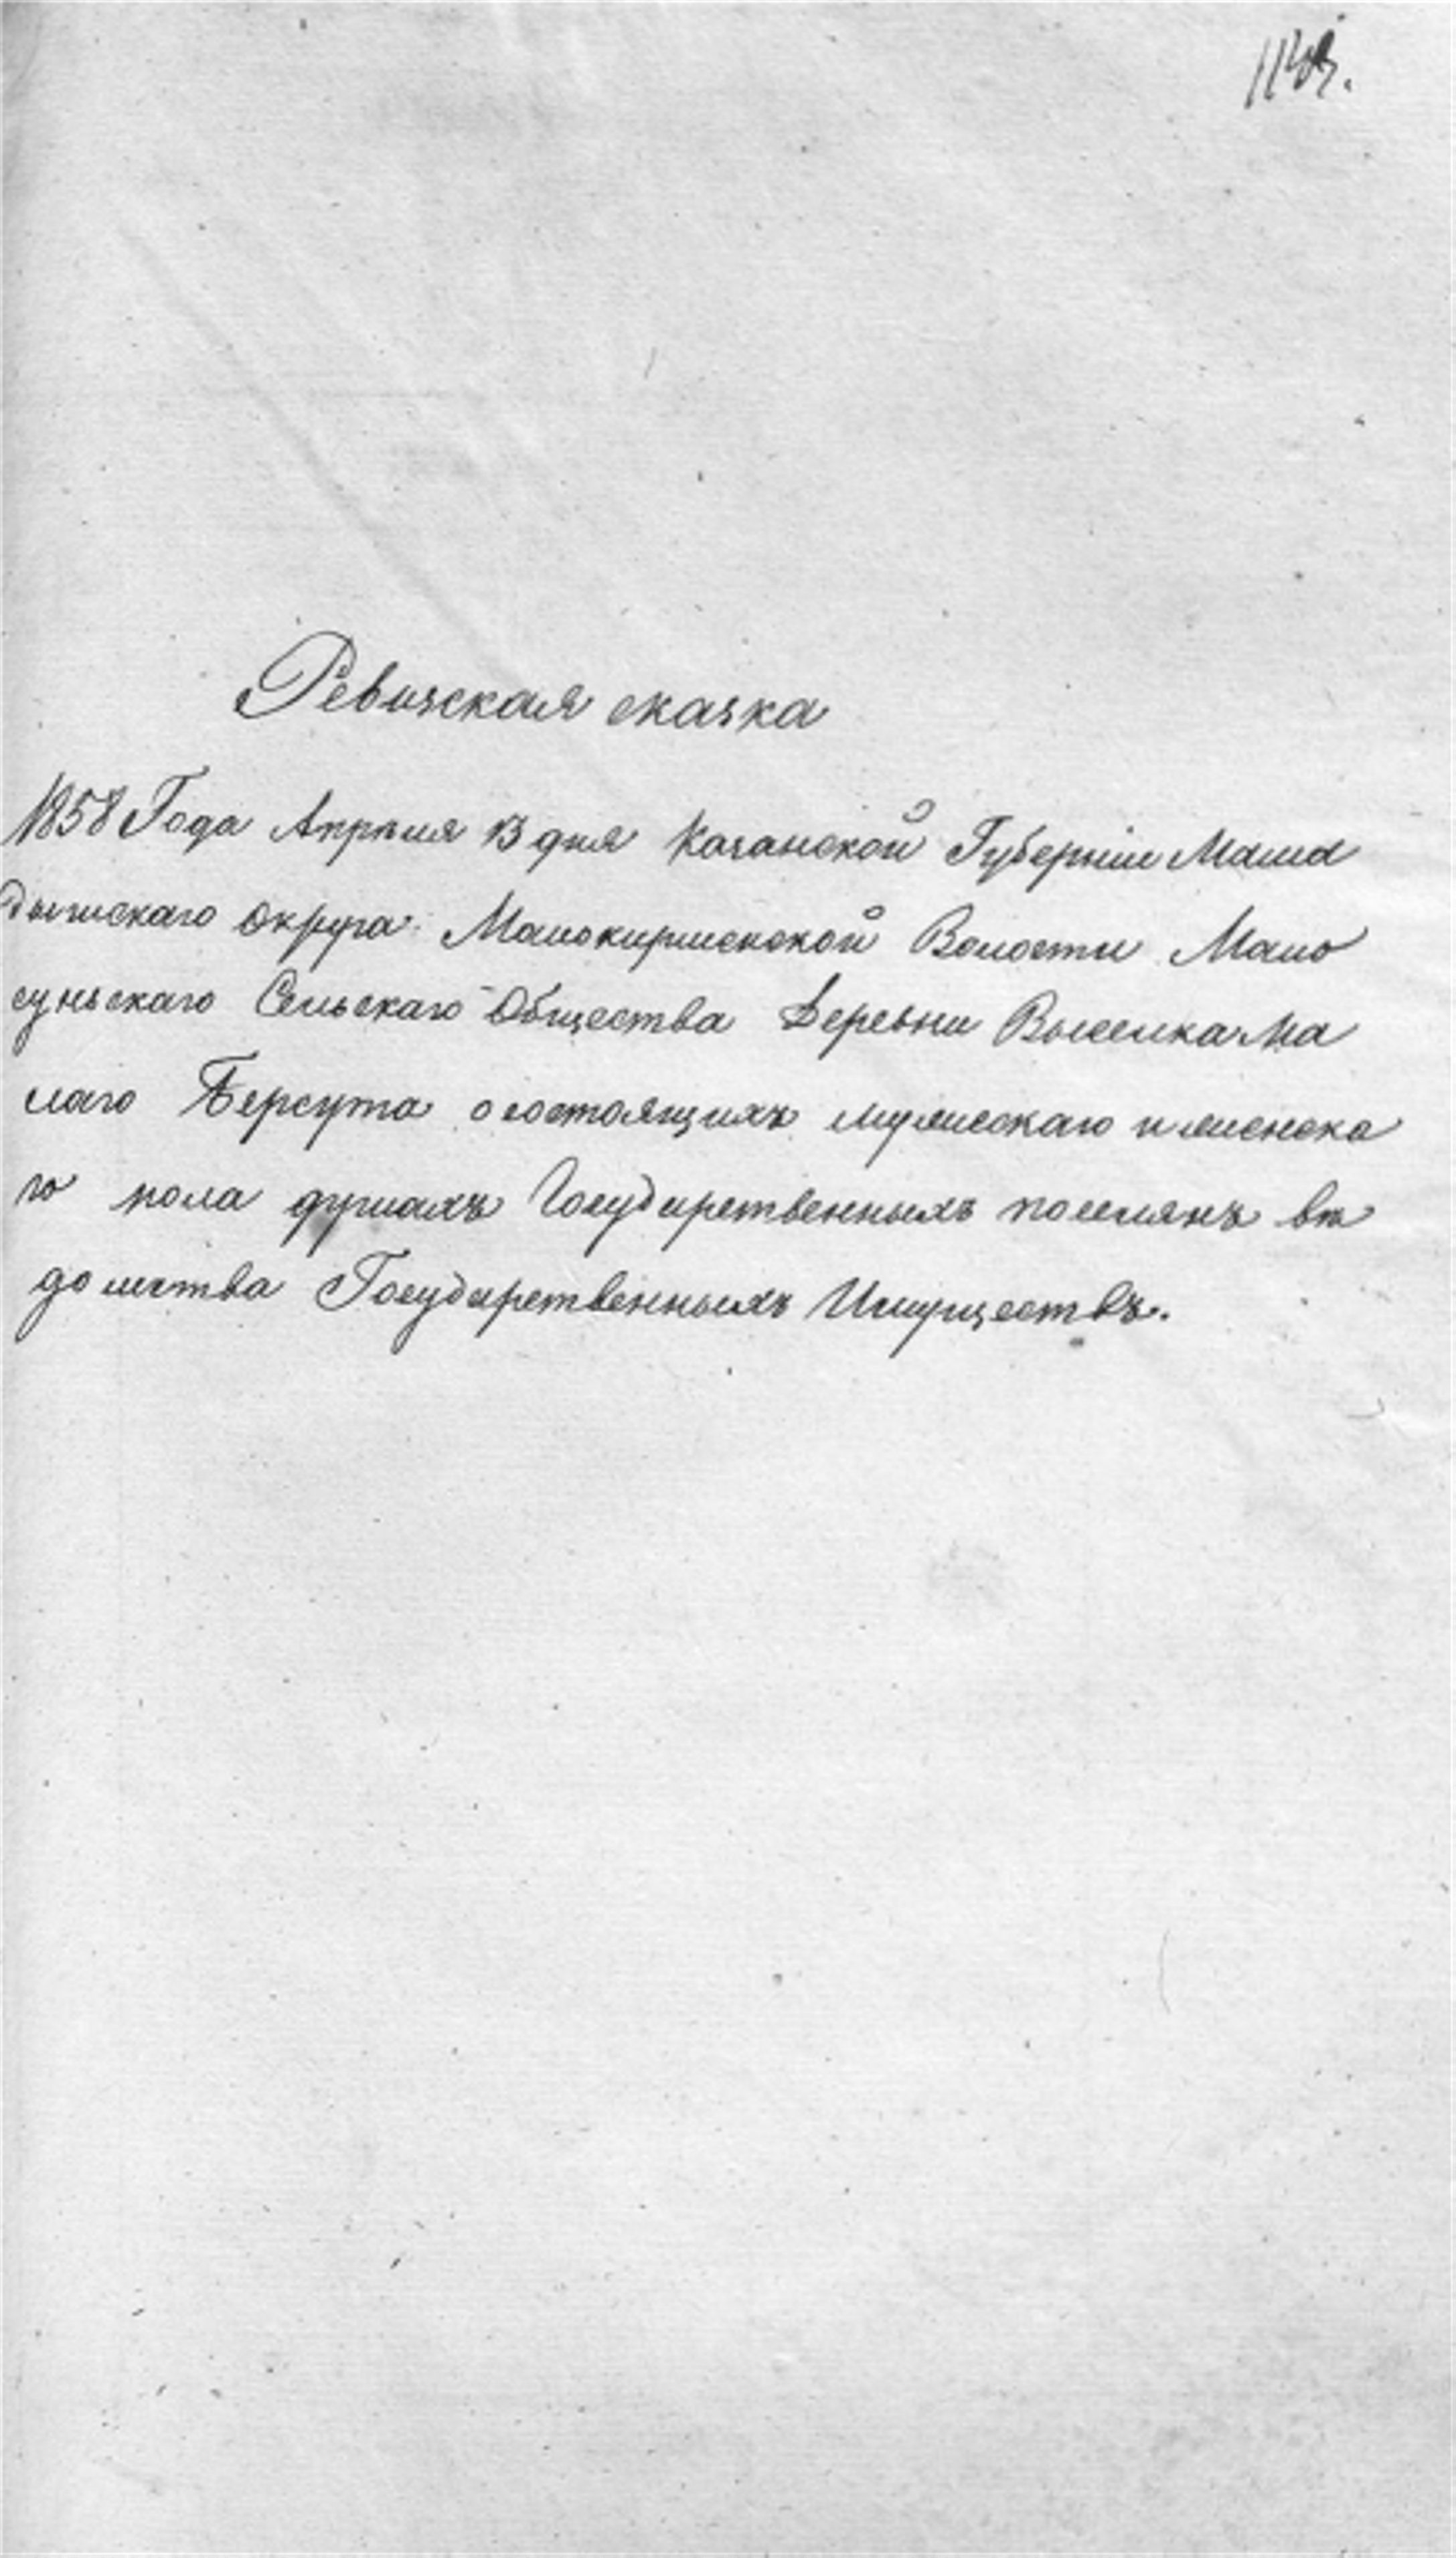 Ревизская сказка
1858 Года Апрѣля 13 дня Казанской Губерніи Мама
дышскаго Округа Малокирменской Волости Мало
суньскаго Сельскаго Общества Деревни Выселка Ма
лаго Берсута о состоящихъ мужескаго и женска
го пола душахъ Государственныхъ поселянъ вѣ
домства Государственныхъ Имуществъ.